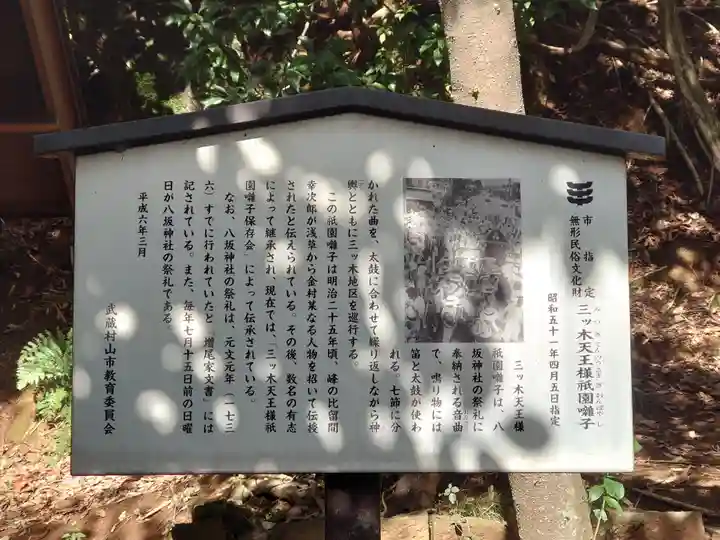 市指定
無形民俗文化財
三ツ木天王様祇園囃子
みつぎてんのうさまぎおんばやし
昭和五十一年四月五日指定
三ツ木天王様
祇園囃子は、八
坂神社の祭礼に
奉納される音曲
で、鳴り物には
笛と太鼓が使わ
れる。七節に分
かれた曲を、太鼓に合わせて繰り返しながら神
輿とともに三ツ木地区を巡行する。
この祇園囃子は明治二十五年頃、峰の比留間
幸次郎が浅草から金村某なる人物を招いて伝授
されたと伝えられている。その後、数名の有志
によって継承され、現在では、「三ッ木天王様祇
園囃子保存会」によって伝承されている。
なお、八坂神社の祭礼は、元文元年（一七三
六）すでに行われていたと『増尾家文書』には
記されている。また、毎年七月十五日前の日曜
日が八坂神社の祭礼である。
平成六年三月
武蔵村山市教育委員会